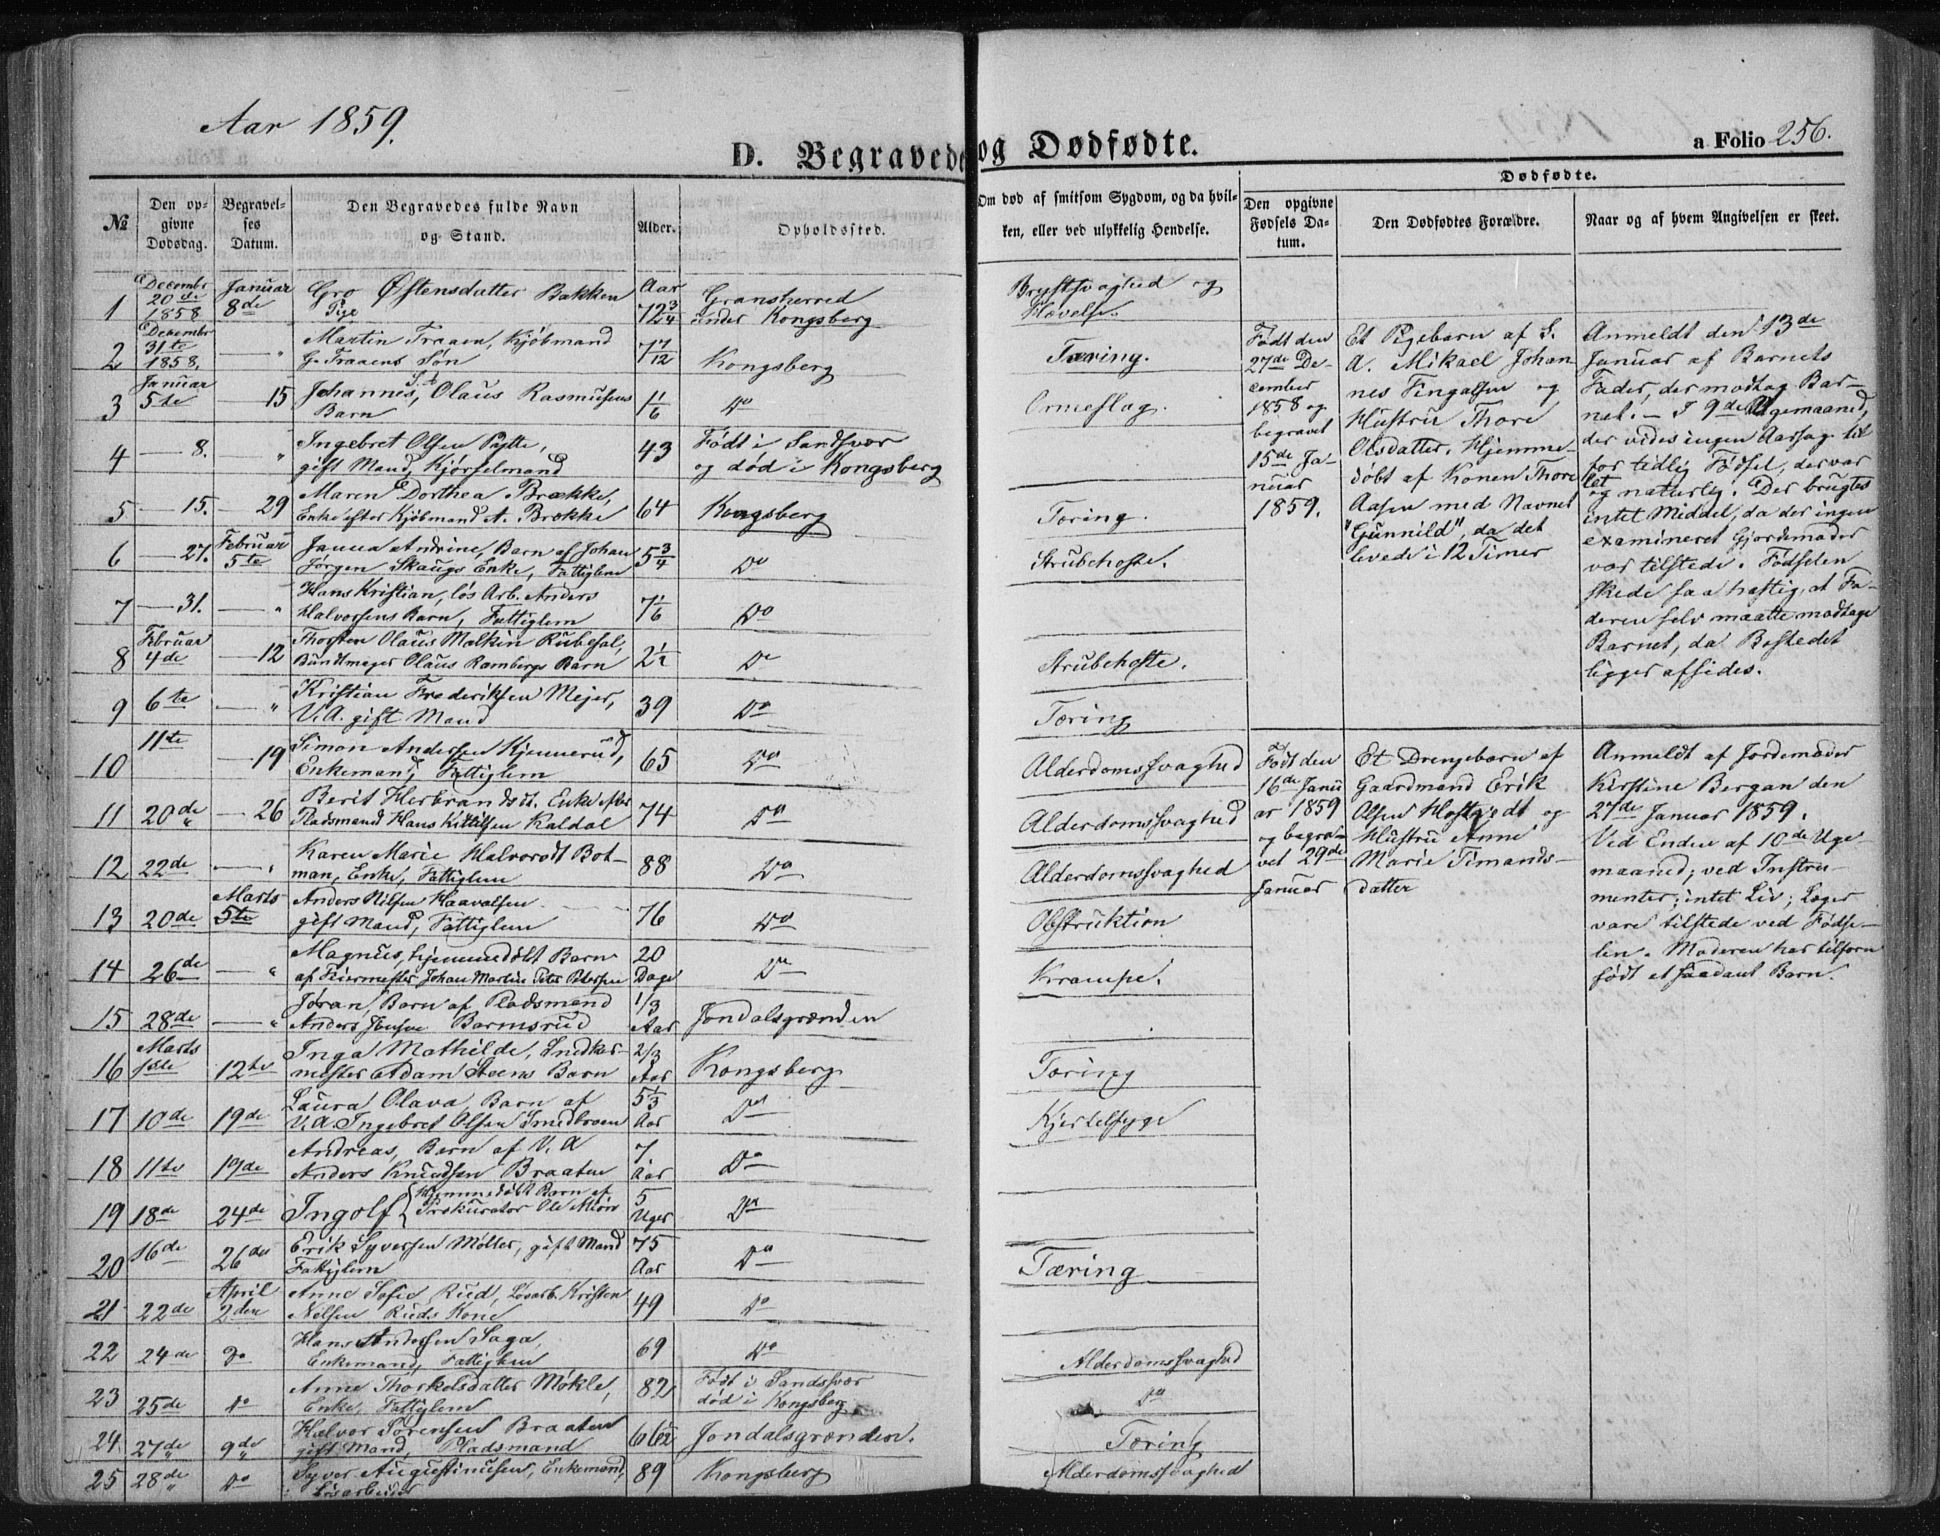 Aar 1859.
D. Begravede og Dødfødte.
a Folio 256.
№
Den opgivne Dødsdag.
Begravelses Datum.
Den Begravedes fulde Navn og Stand.
Alder.
Opholdssted.
Om død af smitsom Sygdom, og da hvilken, eller ved ulykkelig Hendelse.
Dødfødte.
Den opgivne Fødsels Datum.
Den Dødfødtes Forældre.
Naar og af hvem Angivelsen er skeet.
1 Decembr 20de 1858 Januar 8de Gro Østensdatter Bakken Pige Aar 72 3/4 Gransherred under Kongsberg Brystsvaghed og Hævelse.
2 Decembr 31te 1858. — " Martin Traaen, Kjøbmand G. Traaens Søn 7/12 Kongsberg Tæring.
3 Januar 5te — 15 Johannes, Olaus Rasmusens Barn 1 1/6 Do Ormeslag.
4 — 8. " Ingebret Olsen Pytte, gift Mand, Kjørselmand 43 Født i Sandsvær og død i Kongsberg
5 — 15. — 29 Maren Dorthea Brække, Enke efter Kjøbmand A. Brække 64 Kongsberg Tæring.
6 — 27. Februar 5te Andrine, Barn af Johan Jørgen Skaugs Enke, Fattiglem 5 3/4 Do Strubehoste.
7 — 31. — " Hans Kristian, løs Arb. Anders Halvorsens Barn, Fattiglem 1/6 Do
8 Februar 4de — 12 Thorsten Olaus Bundtmager Olaus Rambergs Barn 2 1/2 Do Strubehoste.
9 6te — " Kristian Frederiksen Mejer, V.A. gift Mand 39 Do Tæring
10 11te — 19 Simon Andersen Kjennerud, Enkemand, Fattiglem 65 Do Alderdomssvaghed
11 20de " — 26 Berit Herbrandsdt. Enke efter Pladsmand Hans Kittilsen Kaldal 74 Do Alderdomssvaghed
12 22de — " Karen Marie Halvorsdt Botman, Enke, Fattiglem 88 Do Alderdomssvaghed
13 20de Marts 5te Anders Nilsen Haavalsen gift Mand, Fattiglem 76 Do Obstruktion
14 26de — " Magnus, hjemmedøbt Barn af Johan Martin Peter Petersen 20 Dage Do Krampe.
15 28de — " Jøran, Barn af Pladsmand Anders Jensen Barmsrud 1/3 Aar Jondalsgrænden
16 Marts 1ste 12te Inga Mathilde, Snedkermester Adam Steens Barn 2/3 Aar Kongsberg Tæring
17 10de 19de Laura Olava, Barn af V.A. Ingebret Olsen Smedbroen 5 1/3 Aar Do Kjertelsyge
18 11te 19de Andreas, Barn af V.A Anders Knudsen Braaten 7 Aar Do
19 18de 24de Ingolf Hjemmedøbt Barn af Prokurator Ole 5 Uger Do
20 16de 26de Erik Syversen Møller, gift Mand Fattiglem 75 Aar Do Tæring
21 22de April 2den Anne Sofie Rud, Løsarb. Kristen Nelsen Ruds Kone 49 Do
22 24de Do Hans Andersen Saga, Enkemand, Fattiglem 69 Do Alderdomssvaghed
23 25de Do Anne Thorkelsdatter Møkle, Enke, Fattiglem 82 Født i Sandsvær død i Kongsberg Do
24 27de 9de Halvor Sørensen Braaten gift Mand, Pladsmand Jondalsgrænden. Tæring
25 28de Do Syver Augustinusen, Enkemand, Løsarbeider 89 Kongsberg Alderdomssvaghed
Født den 27de December 1858 og begravet 15de Januar 1859.
Et Pigebarn af S.
A. Mikael Johan
nes Fingalsen og
Hustru Thore
Olsdatter. Hjemme-
døbt af Konen Thore
Aasen med Navnet
"Gunnild", da det
levede i 12 Timer
Anmeldt den 13de
Januar af Barnets
Fader, der modtog Bar-
net. — I 9de Ugemaaned,
der vides ingen Aarsag til
for tidlig Fødsel, der var
let og naturlig. Der brugtes
intet Middel, da der ingen
examineret Gjordemoder
var tilstede. Fødselen
skede saa hastig, at Fa-
deren selv maatte modtage
Barnet, da Bostedet
ligger afsides.
Født den 16de Januar 1859 og begravet 29de Januar
Et Drengebarn af
Gaardmand Erik
Olsen Hostvedt og
Hustru Anne
Marie Simonds-
datter
Anmeldt af Jordemoder
Kirstine Bergan den
27de Januar 1859.
Ved Enden af 10de Uge-
maaned; ved Instru-
menter; intet Liv; Læger
vare tilstede ved Fødse-
len. Moderen har tilforn
født et saadant Barn.